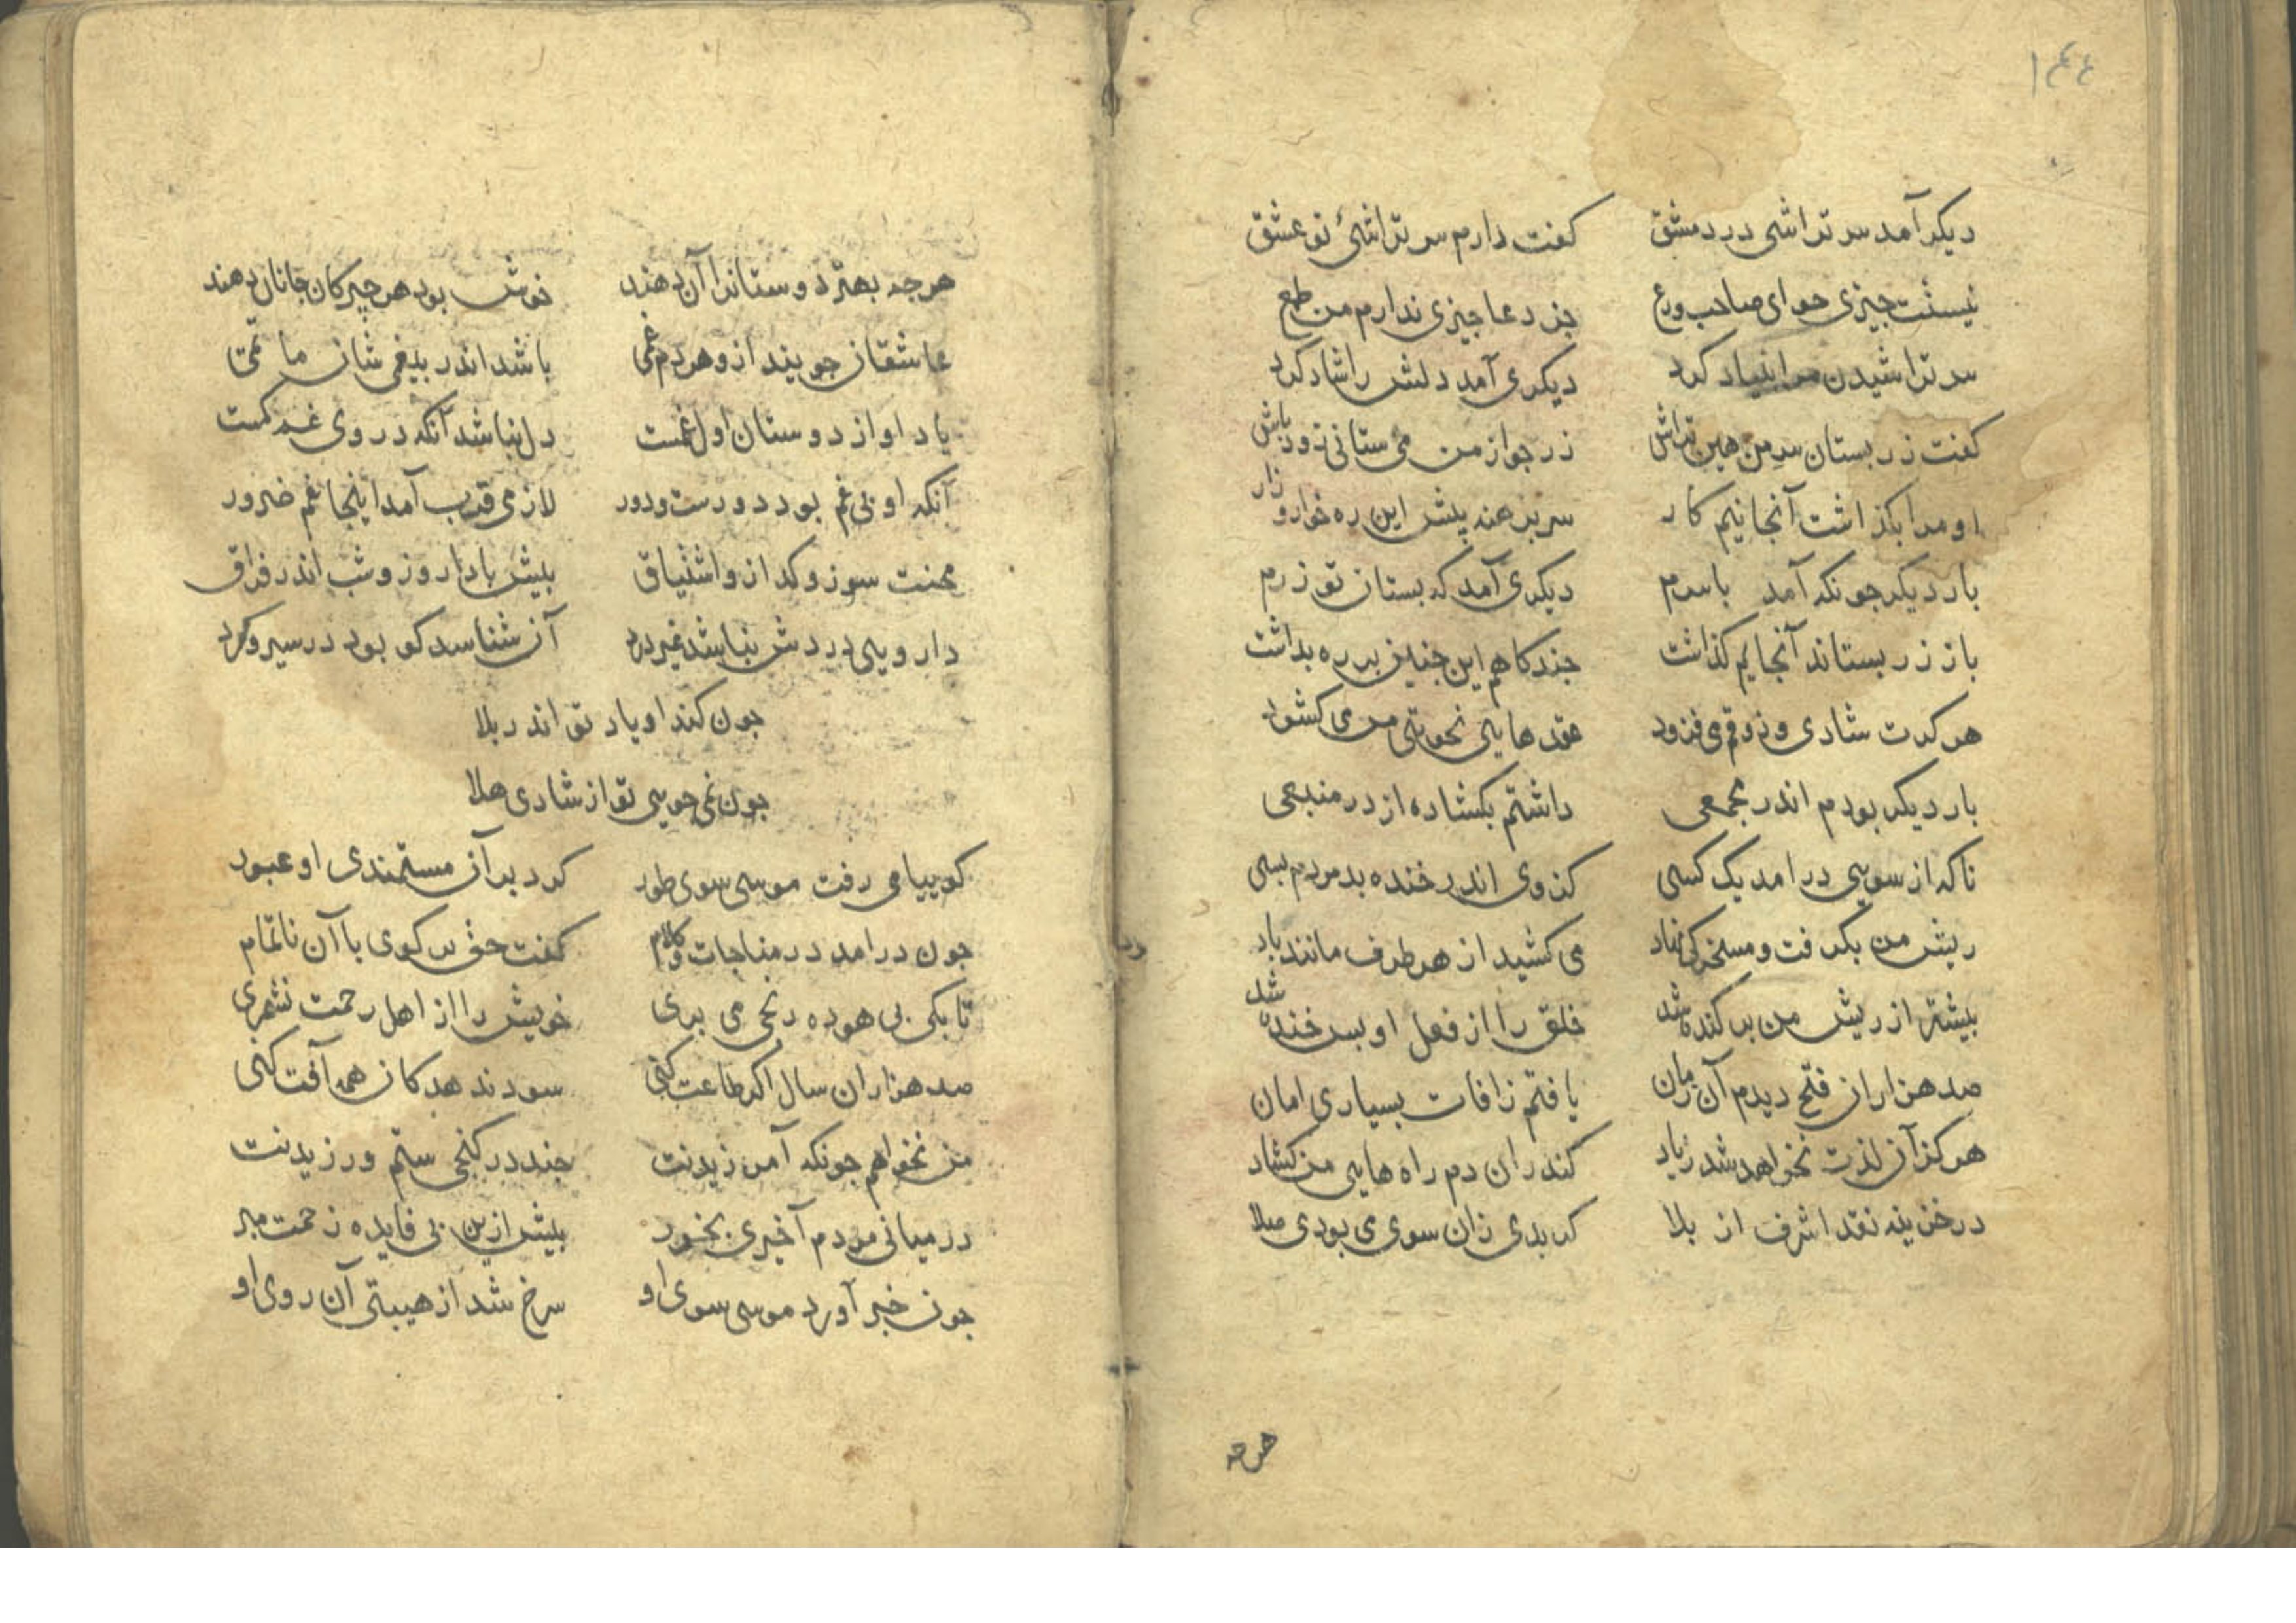 ١٤٤
دیکر آمد سر تراشی در دمشق کفت دارم سر تراشئ تو عشق
نیست جیزی جو ای صاحب ورع جز دعا جیزی ندارم من طمع
سر تراشیدن مرا بنیاد کرد دیکری آمد دلش را شاد کرد
کفت زر بستان سر من هین تراش زر جو از من می ستانی زود باش
او مرا بکذاشت آنجا نیم کار سر برهنه پیش این ره خوار و زار
بار دیکر جونکه آمد باسرم دیکری آمد که بستان تو زرم
باز زر بستاند آنجایم کذاشت جند کاهم این جنین بر ره بداشت
هر کرت شادی و ذوقم می فزود عقدهایی نحوتی من می کشود
بار دیکر بودم اندر مجمعی داشتم بکشاده از در منبعی
ناکه از سویی در امد یک کسی کز وی اندر خنده بد مردم بسی
ریش من بکرفت و مسخرکی نهاد می کشید از هر طرف مانند باد
بیشتر از ریش من بر کنده شد خلق را از فعل او بس خنده شد
صد هزاران فتح دیدم آن زمان یافتم زافات بسیاری امان
هرکز آن لذت نخواهد شد زیاد کندران دم راه هایی من کشاد
در خزینه نقد اشرف از بلا کر بدی زان سوی می بودی صلا
هرجه
هرجه بهتر دوستانرا آن دهند خوش بود هر جیز کان جانان دهند
عاشقان جویند ازو هر دم غمی باشد اندر بیغمی شان ماتمی
یاد او از دوستان اول غمست دل نباشد آنکه در وی غم کمست
آنکه او بی غم بود دورست و دور لازمی قرب آمد اینجا غم ضرور
محنت سوز و کداز و اشتیاق بیش باد ار روز و شب اندر فراق
دارویی دردش نباشد غیر درد آن شناسد کو بود در سیر و کرد
جون کند او یاد تو اندر بلا
جون نمی جویی تو از شادی هلا
کوییا می رفت موسی سوی طور کرد بر آن مستمندی او عبور
جون در امد در مناجات و کلام کفت حق بر کوی با آن ناتمام
تا بکی بی هوده رنجی می بری خویش را از اهل رحمت نشمری
صد هزاران سال اکر طاعت کنی سود ندهد کان همه آفت کنی
من نخواهم جونکه آمرزیدنت جند در کنجی ستم ورزیدنت
در میانی مردم آ خیری بخور بیش ازین بی فایده زحمت مبر
جون خبر آورد موسی سوی او سرخ شد از هیبتی آن روی او